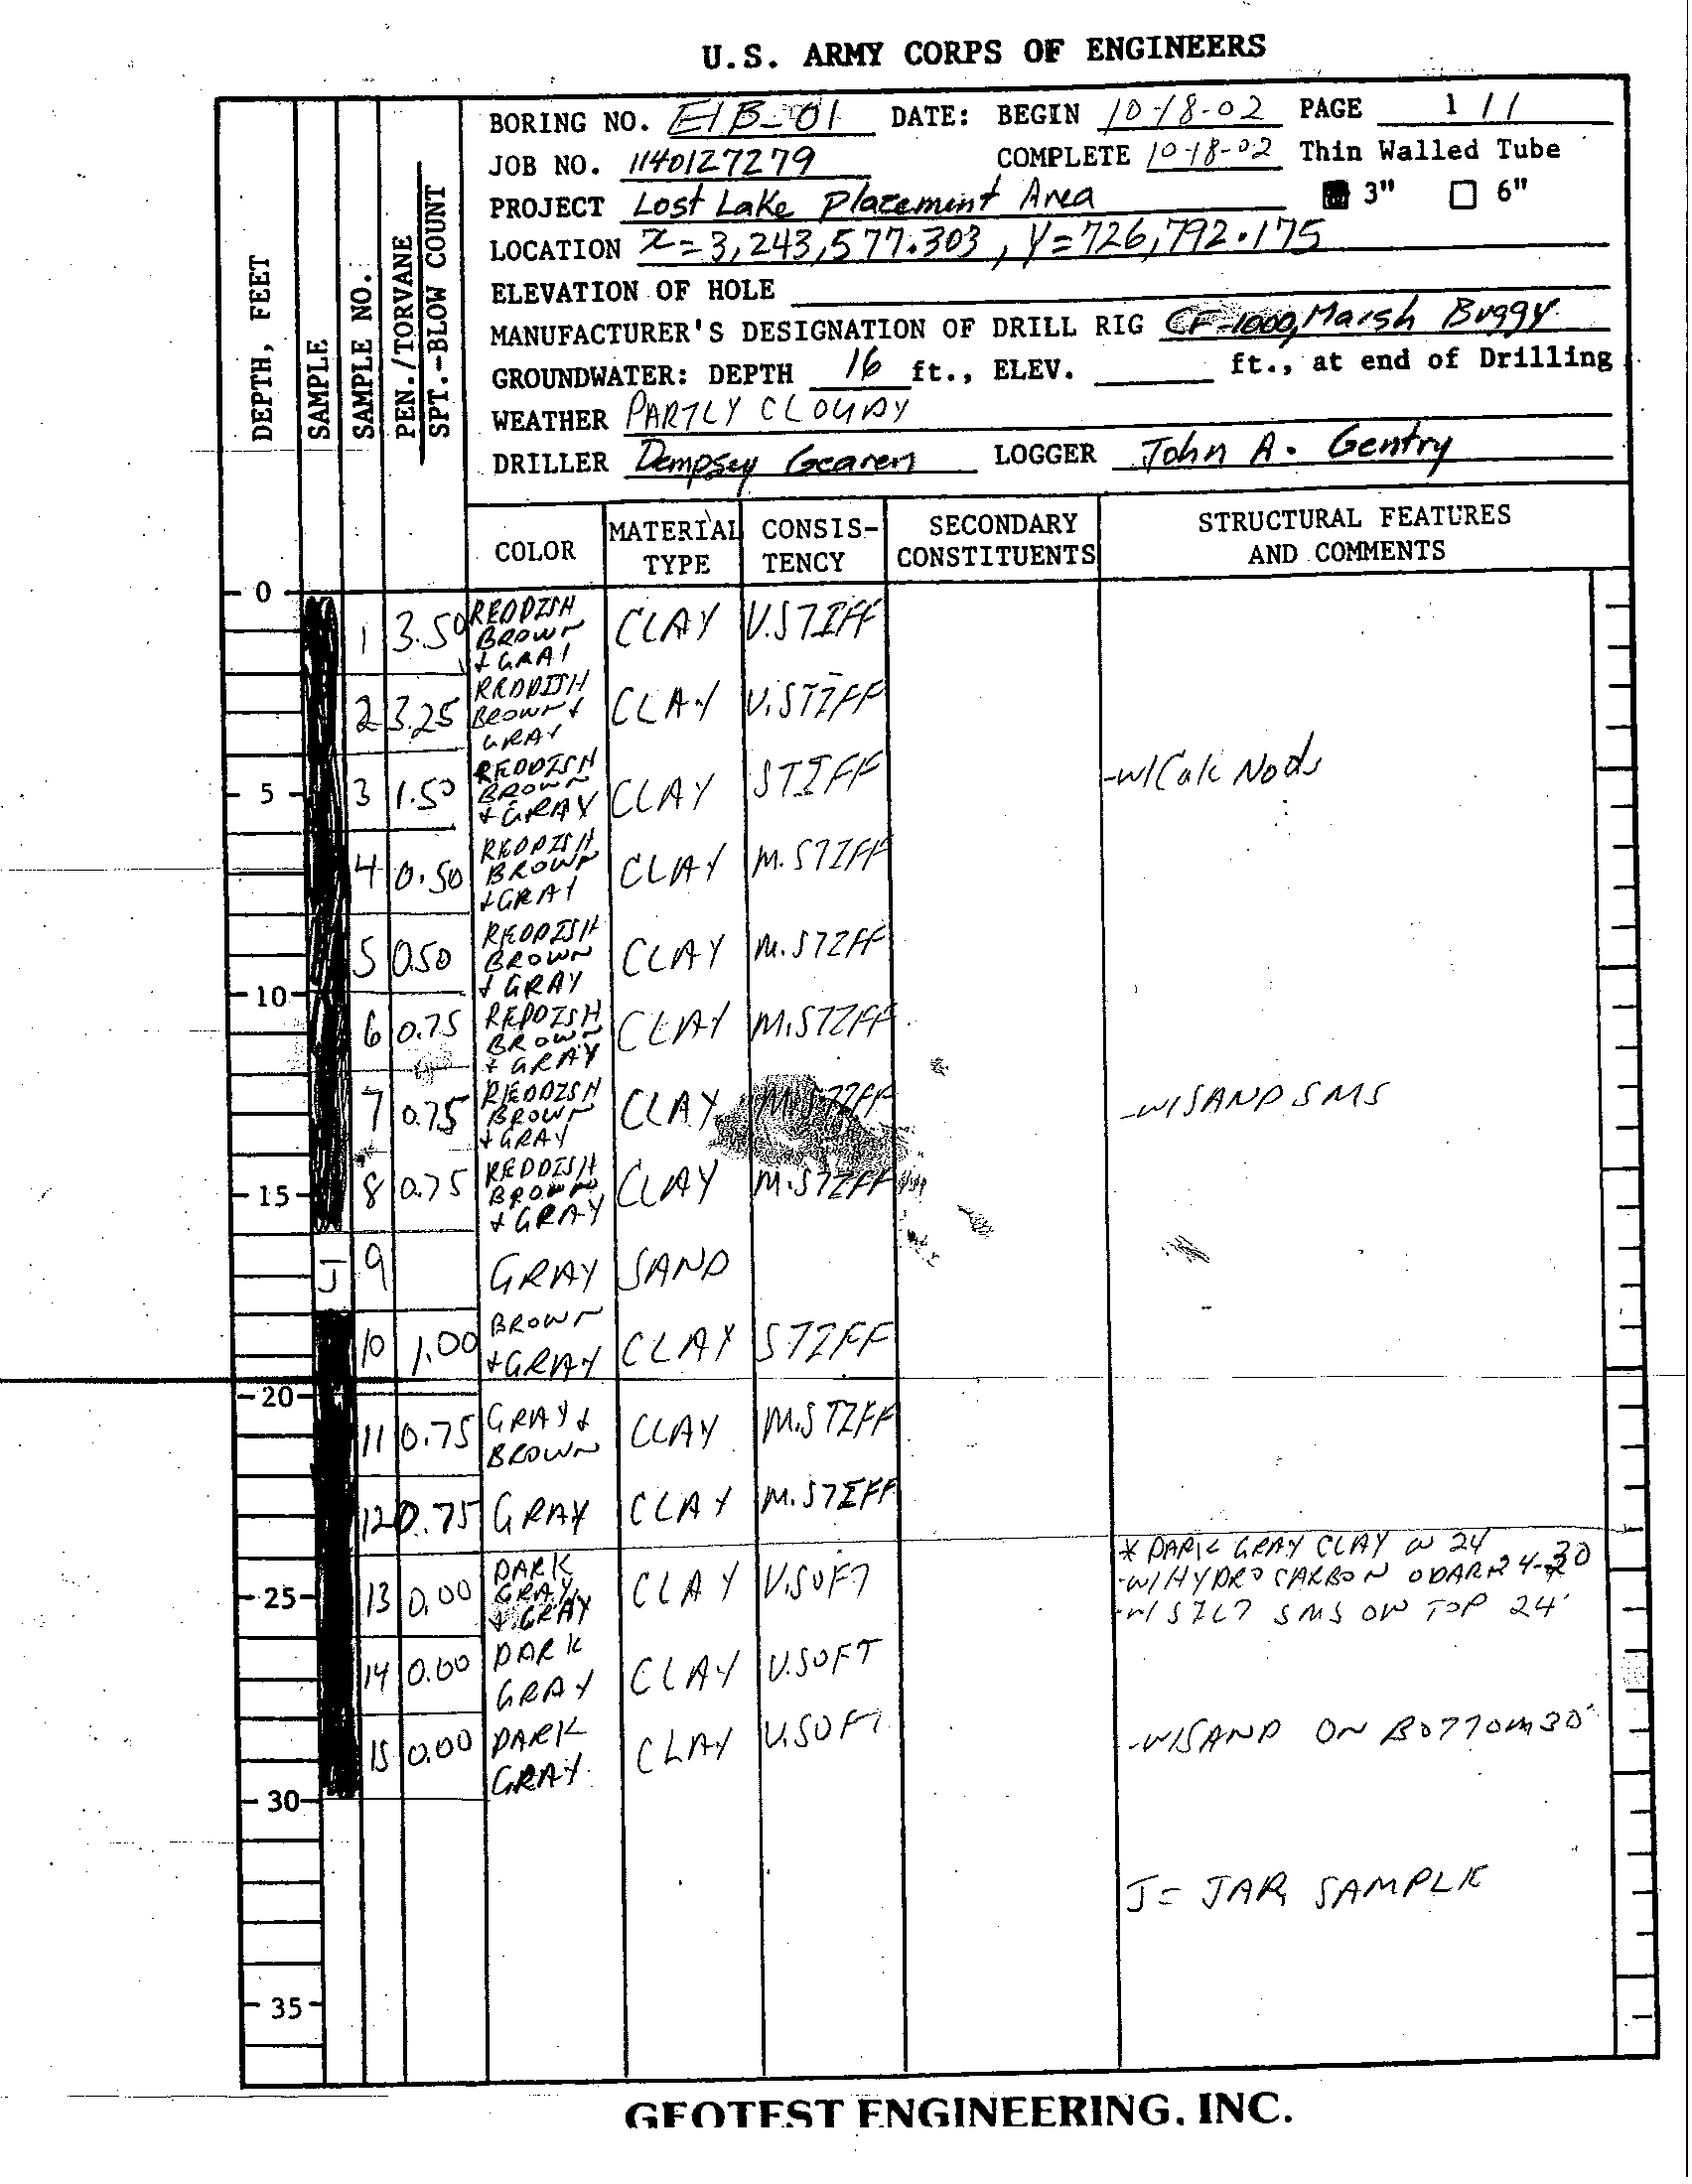 U.S. ARMY CORPS OF ENGINEERS
BORING NO. EIB-01 DATE: BEGIN 10-18-02 PAGE 1 / 1
JOB NO. 1140127279 COMPLETE 10-18-02 Thin Walled Tube
PROJECT Lost Lake Placement Area 3" 6"
LOCATION x=3,243,577.303, Y=726,792.175
ELEVATION OF HOLE
MANUFACTURER'S DESIGNATION OF DRILL RIG CF-1000, Marsh Buggy
GROUNDWATER: DEPTH 16 ft., ELEV. ft., at end of Drilling
WEATHER PARTLY CLOUDY
DRILLER Dempsey Gearen LOGGER John A. Gentry
DEPTH, FEET
SAMPLE
SAMPLE NO.
PEN./TORVANE
SPT.-BLOW COUNT
COLOR
MATERIAL
TYPE
CONSIS-
TENCY
SECONDARY
CONSTITUENTS
STRUCTURAL FEATURES
AND COMMENTS
0
1 3.50 REDDISH
BROWN
+ GRAY
CLAY V.STIFF
2 3.25 REDDISH
BROWN +
GRAY
CLAY V.STIFF
5
3 1.50 REDDISH
BROWN
+ GRAY
CLAY STIFF -w/Calc Nods
4 0.50 REDDISH
BROWN
+ GRAY
CLAY M. STIFF
5 0.50 REDDISH
BROWN
+ GRAY
CLAY M. STIFF
10
6 0.75 REDDISH
BROWN
+ GRAY
CLAY M.STIFF
7 0.75 REDDISH
BROWN
+ GRAY
CLAY M.STIFF -w/SAND SMS
15
8 0.75 REDDISH
BROWN
+ GRAY
CLAY M.STIFF
J 9 GRAY SAND
10 1.00 BROWN
+ GRAY
CLAY STIFF
20
11 0.75 GRAY +
BROWN
CLAY M.STIFF
12 0.75 GRAY CLAY M.STIFF
25
13 0.00 DARK
GRAY
+ GRAY
CLAY V.SOFT
* DARK GRAY CLAY @ 24
-w/HYDROCARBON ODAR 24-30
-w/ SILT SMS ON TOP 24'
14 0.00 DARK
GRAY
CLAY V.SOFT
15 0.00 DARK
GRAY
CLAY V.SOFT -w/SAND ON BOTTOM 30'
30
J= JAR SAMPLE
35
GEOTEST ENGINEERING, INC.